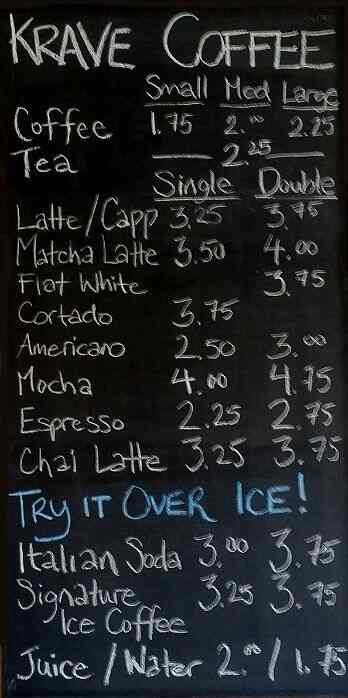 KRAVE COFFEE
Small Med Large
Coffee 1.75 2.00 2.25
Tea — 2.25 —
Single Double
Latte/Capp 3.25 3.75
Matcha Latte 3.50 4.00
Flat White 3.75
Cortado 3.75
Americano 2.50 3.00
Mocha 4.00 4.75
Espresso 2.25 2.75
Chai Latte 3.25 3.75
TRY IT OVER ICE!
Italian Soda 3.00 3.75
Signature 3.25 3.75
Ice Coffee
Juice/Water 2.00/1.75